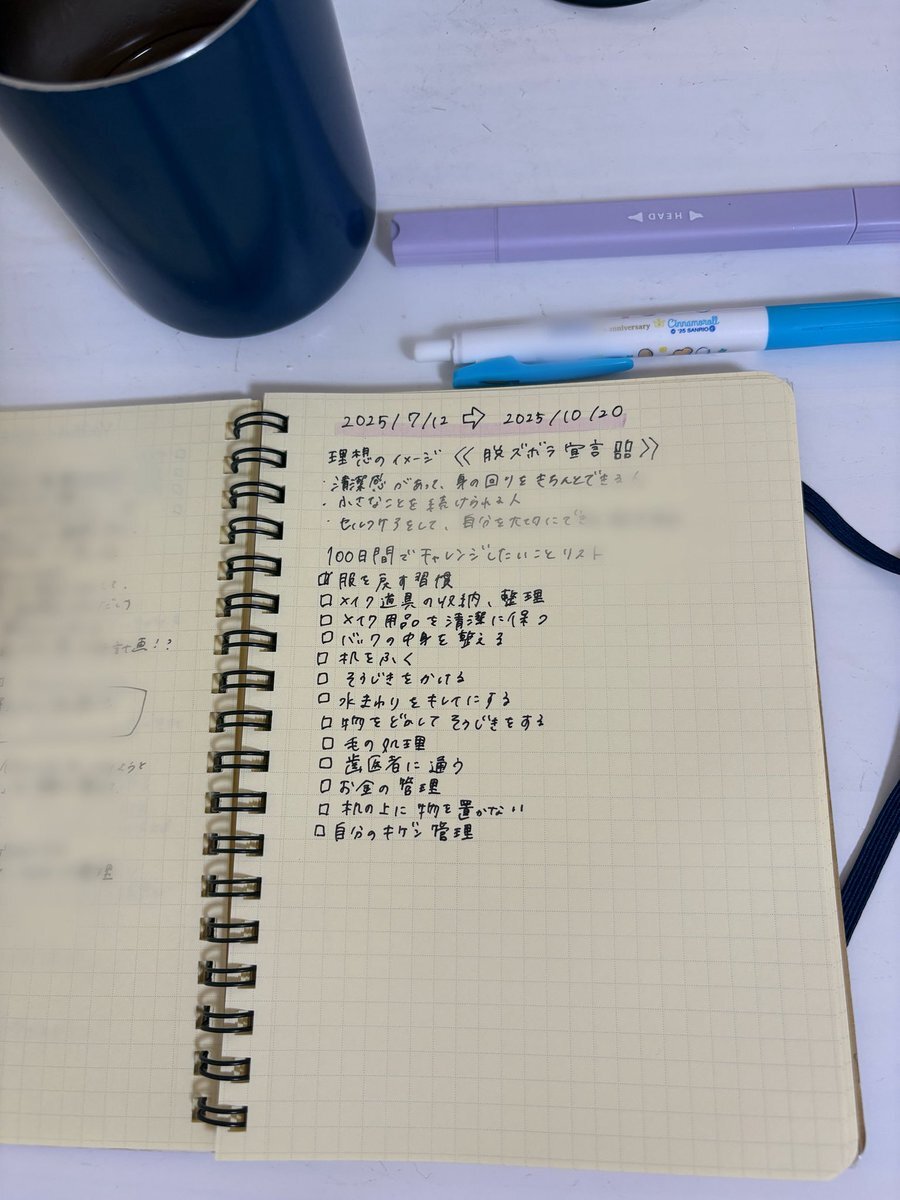 HEAD
nniversary Cinnamoroll
© '25 SANRIO
2025/7/12 ⇨ 2025/10/20
理想のイメージ 《 脱ズボラ宣言 》
・清潔感があって、身の回りをきちんとできる
・小さなことを続けられる人
・セルフケアをして、自分を大切にでき
100日間でチャレンジしたいことリスト
□ 服を戻す習慣
□ メイク道具の収納、整理
□ メイク用品を清潔に保つ
□ バックの中身を整える
□ 机をふく
□ そうじきをかける
□ 水まわりをキレイにする
□ 物をどかしてそうじきをする
□ 毛の処理
□ 歯医者に通う
□ お金の管理
□ 机の上に物を置かない
□ 自分のキゲン管理
計画!?